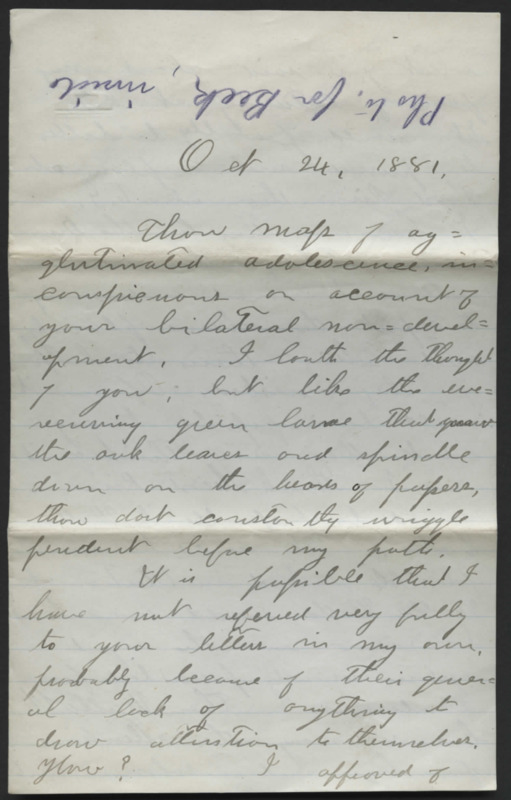 Photo. for Beck, inside
Oct 24, 1881.
Thou mass of ag=
glutinated adolescence, in=
conspicuous on account of
your bilateral non=devel=
opment, I loath the thought
of you; but like the ever=
recurring green larvae that gnaw
the oak leaves and spindle
down on the heads of passers,
thou dost constantly wriggle
pendent before my path.
It is possible that I
have not referred very fully
to your letters in my own,
probably because of their gener=
al lack of anything to
draw attention to themselves.
How? I approved of